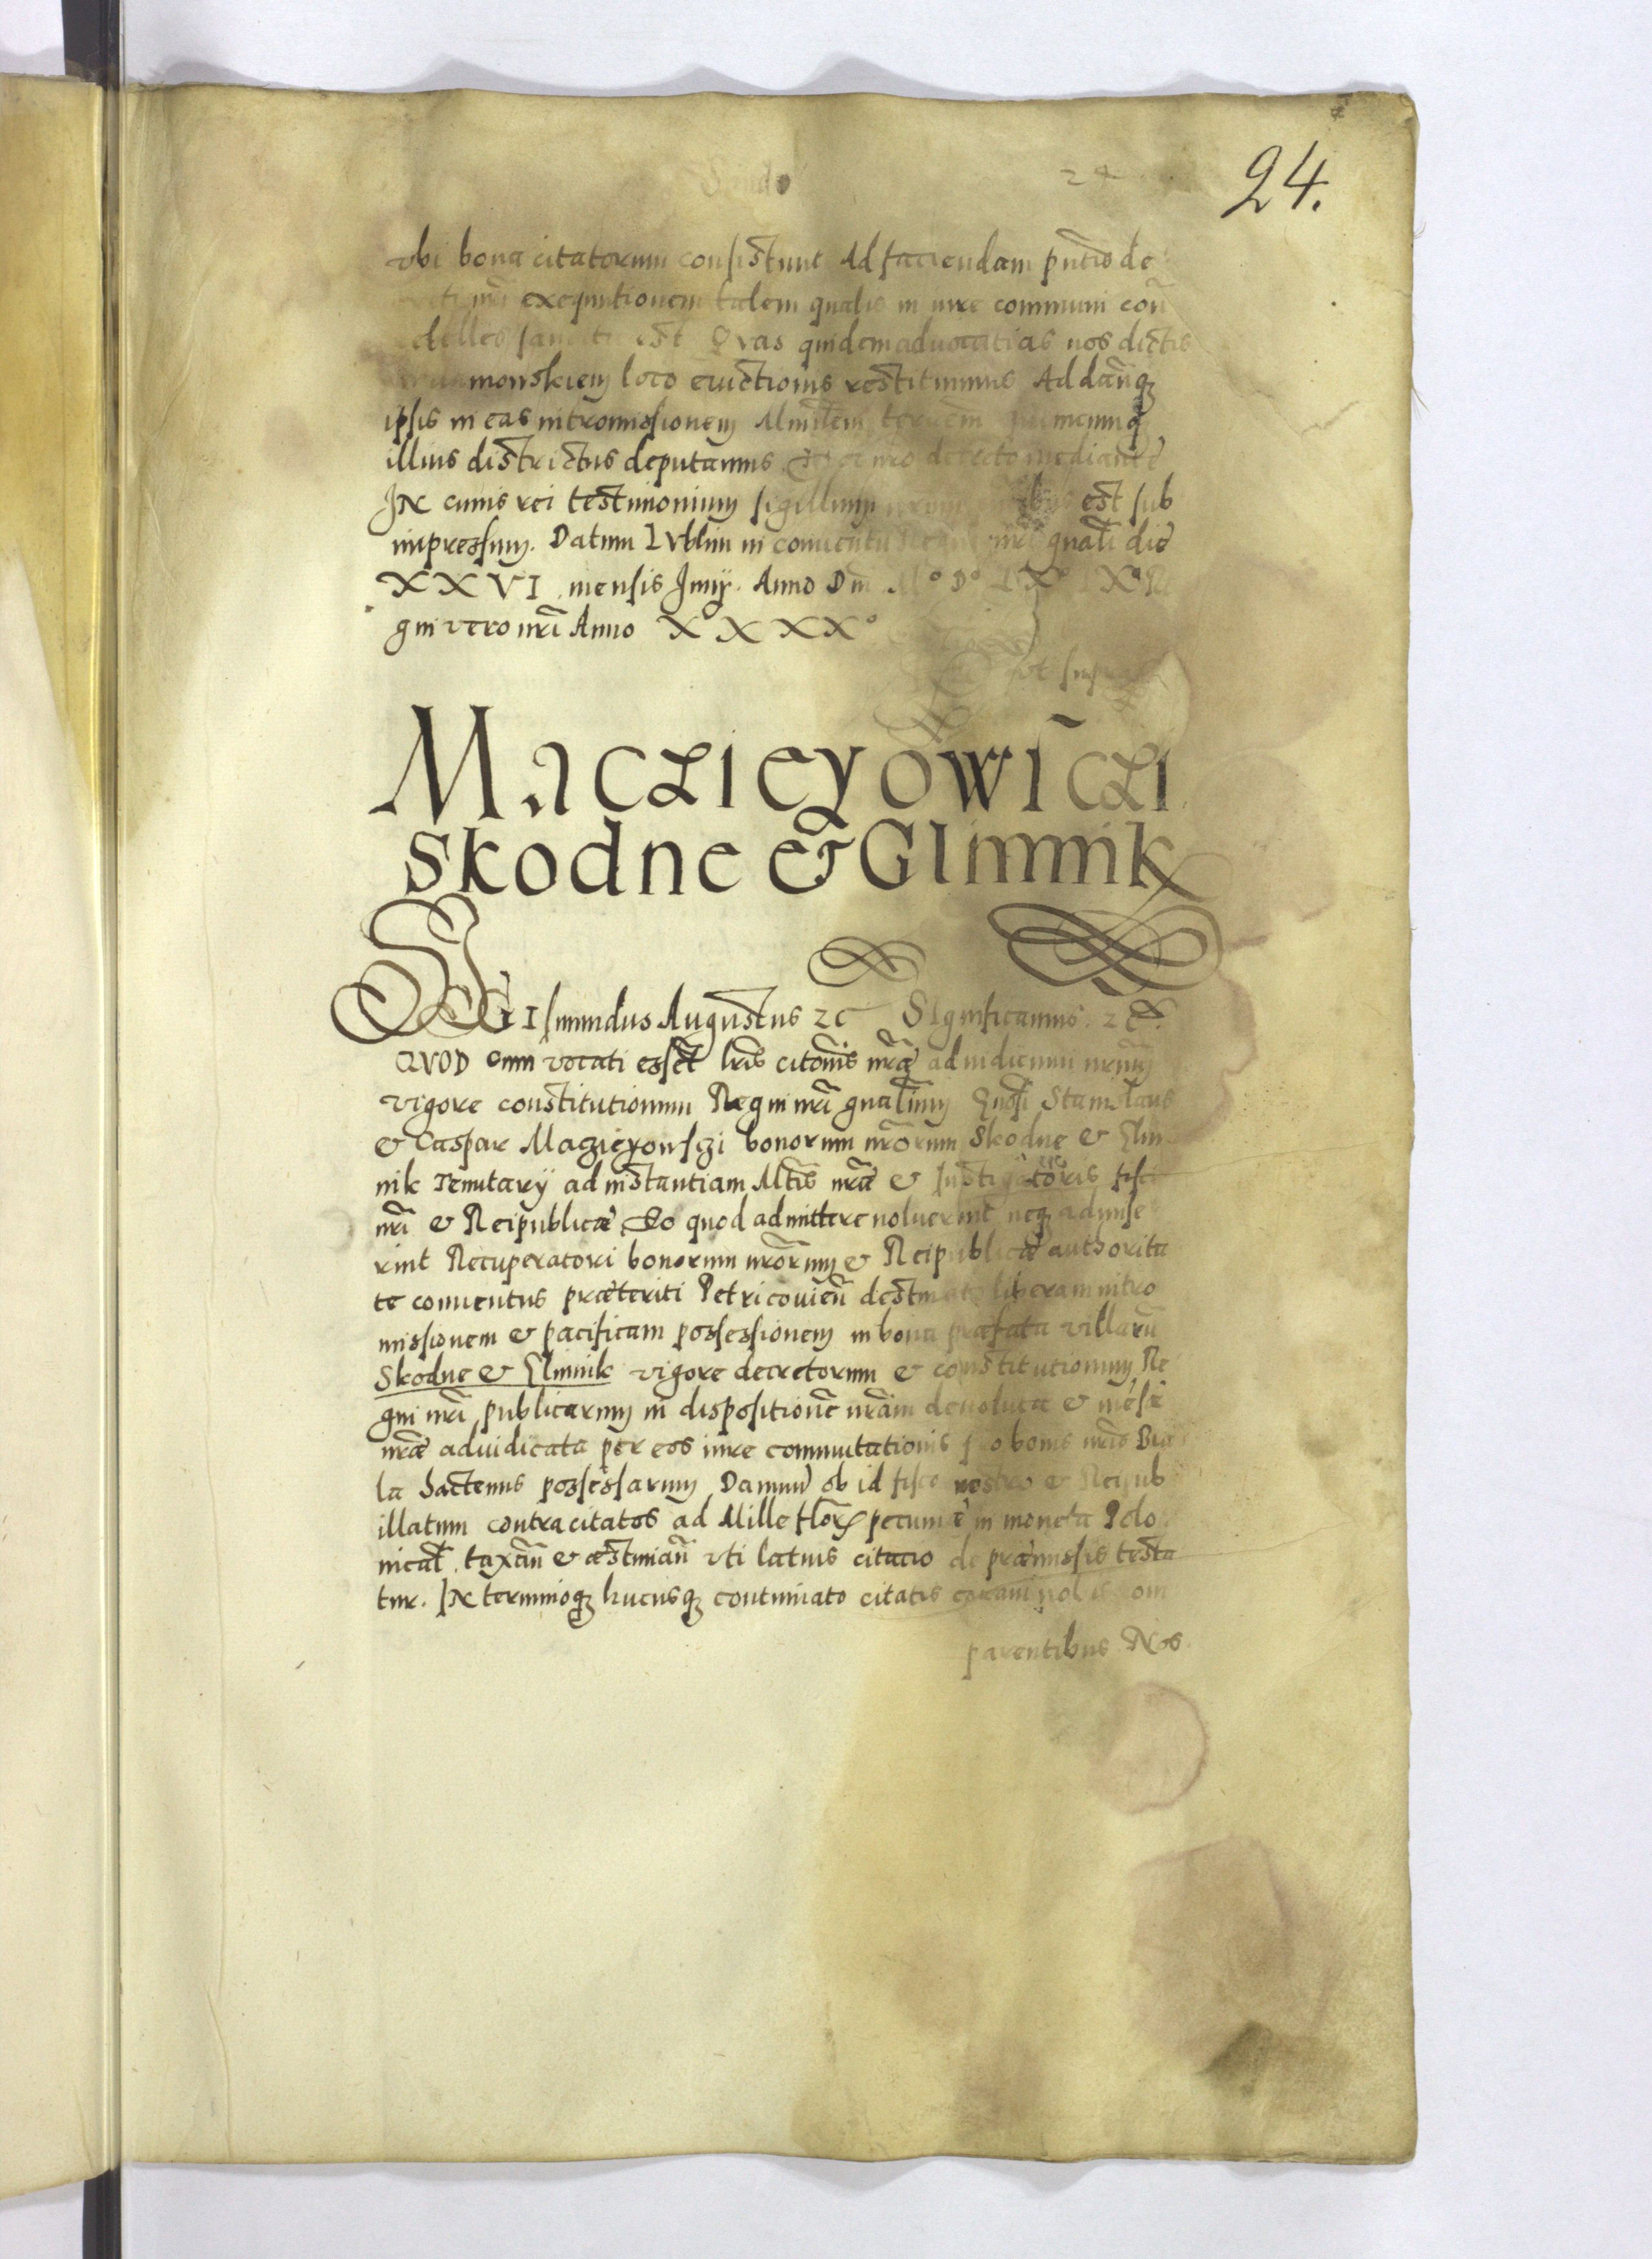 24.
vbi bona citatorum consistunt Ad faciendam pñtis de
nr̃i exequutionem talem qualis in iure communi con̄
est Qvas quidem aduocatias nos dictis
monskiem loco euictionis restituimus Ad dan̄q̨
ipsis in eas intromissionem Minrl̄em terrēm
illius districtus deputamus nr̃o decreto mediante
IN cuius rei testimonium sigillum est sub
impressum. Datum LVblini in conuentu nr̃i gnali die
XXVI mensis Junij. Anno Dni M° D° LX° IX° Re
gni vero nr̃i Anno XXXX°
vt supra
Maczieyowiczi
Skodne & Glinnik
SIGIsmundus Augustus zc SIgnificamus. zc.
QVOD cum vocati essēt lris citōnis nr̃æ ad iudicium nr̃um
vigore constitutionum Regni nr̃i gnalium Gnosi Stanislaus
& Caspar Maczieyowsczi bonorum nr̃orum Skodne & Glin
nik Tenutarij ad instantiam Mtis nr̃æ & Instigatoris fisci
nr̃i & Reipublicæ Eo quod admittere noluerint neq̨ admise
rint Recuperatori bonorum nr̃orum & Reipublicæ authorita
te conuentus præteriti Petricouien̄ destinato liberam intro
missionem & pacificam possessionem in bona præfata villarū
Skodne & Glinnik vigore decretorum & constitutionum Re
gni nr̃i publicarum in dispositionē nr̃am deuoluta & mēsæ
nr̃æ adiudicata per eos iure commutationis pro bonis nr̃is Bia
la hactenus possessarum Damnū ob id fisco nostro & Reipub
illatum contra citatos ad Mille flor̄ pecuniæ in moneta Polo
nical̄ taxan̄ & æstimian̄ vti latius citatio de præmissis testa
tur. IN terminoq̨ hucusq̨ continuato citatis coram nobis com
parentibus Nos